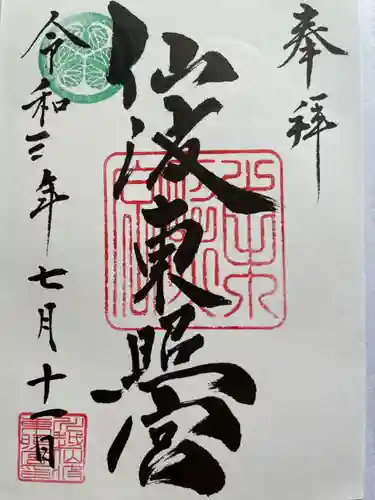 奉拝
仙波東照宮
令和三年七月十一日